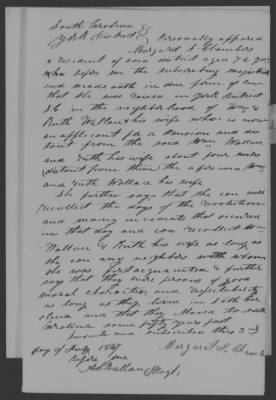 South Carolina
York District } Personally appeared
Margaret S Chambers
a resident of said district aged 72 years
who before me the subscribing magistrate
and made oath in due form of law
that she was raised in york District
S.C. in the neighborhood of Wm &
Ruth Wallace his wife who is now
an applicant for a Pension and dis
tant from the said Wm Wallace
and Ruth his wife about four miles
(distant from them) the afore said Wm
and Ruth Wallace his wife
She further says that she can well
recollect the days of the Revolution
and many incidents that occured
in that day and can recollect Wm
Wallace & Ruth his wife as long as
she can any neighbors with whom
she was first acquainted & further
say that they were persons of good
moral character and respectability
as long as they lived in both Car
olina and that they Moved to north
Carolina some fifty years past
Sworn to and subscribed this 3rd
day of July 1847 Margaret S. Chambers
before me
Wallace Magt